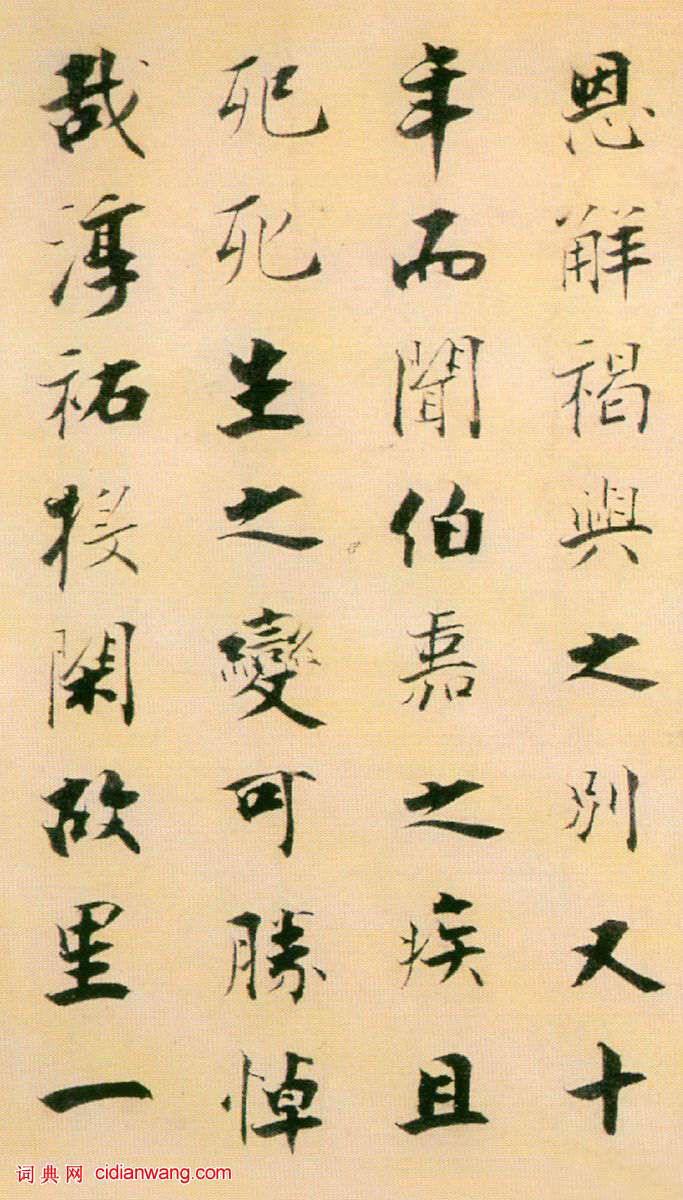 恩解褐與之別又十
年而聞伯嘉之疾且
死死生之變可勝悼
哉淳祐投閑故里一
词典网 cidianwang.com